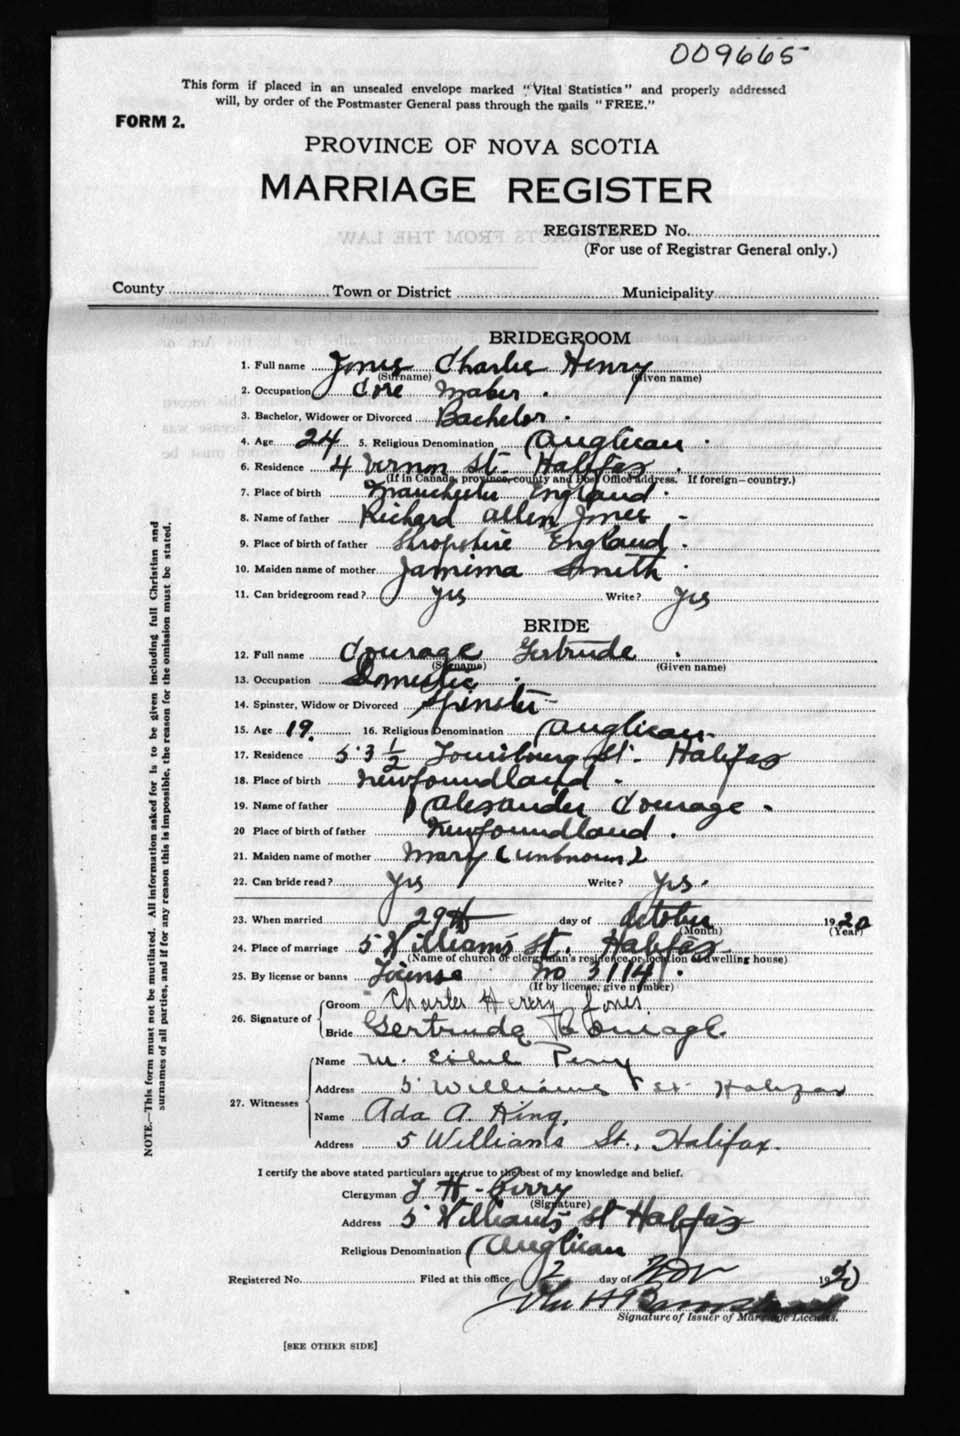 009665
This form if placed in an unsealed envelope marked "Vital Statistics" and properly addressed
will, by order of the Postmaster General pass through the mails "FREE."
FORM 2.
PROVINCE OF NOVA SCOTIA
MARRIAGE REGISTER
REGISTERED No.
(For use of Registrar General only.)
County Town or District Municipality
BRIDEGROOM
1. Full name Jones Charlie Henry
(Surname) (Given name)
2. Occupation Core Maker.
3. Bachelor, Widower or Divorced Bachelor.
4. Age 24 5. Religious Denomination Anglican.
6. Residence 4 Vernon St. Halifax.
(If in Canada, province, county and Post Office address. If foreign—country.)
7. Place of birth Manchester England.
8. Name of father Richard Allen Jones -
9. Place of birth of father Shropshire England.
10. Maiden name of mother Jamima Smith.
11. Can bridegroom read? Yes Write? Yes
BRIDE
12. Full name Courage Gertrude.
(Surname) (Given name)
13. Occupation Domestic.
14. Spinster, Widow or Divorced Spinster-
15. Age 19. 16. Religious Denomination Anglican.
17. Residence 53 1/2 Louisbourg St. Halifax
18. Place of birth Newfoundland.
19. Name of father Alexander Courage.
20 Place of birth of father Newfoundland.
21. Maiden name of mother Mary (unknown)
22. Can bride read? Yes Write? Yes.
23. When married 29th day of October 1920
(Month) (Year)
24. Place of marriage 5 Williams St. Halifax
(Name of church or clergyman's residence or location of dwelling house)
25. By license or banns License No 31141.
(If by license, give number)
26. Signature of Groom Charles Henery Jones
Bride Gertrude Courage.
27. Witnesses Name M. Ethel Perry
Address 5 Williams St Halifax
Name Ada A. King,
Address 5 Williams St., Halifax.
I certify the above stated particulars are true to the best of my knowledge and belief.
Clergyman T H. Perry
(Signature)
Address 5 Williams St Halifax
Religious Denomination Anglican
Registered No. Filed at this office 2 day of Nov 1920
Signature of Issuer of Marriage Licenses.
[SEE OTHER SIDE]
NOTE.—This form must not be mutilated. All information asked for is to be given including full Christian and
surnames of all parties, and if for any reason this is impossible, the reason for the omission must be stated.